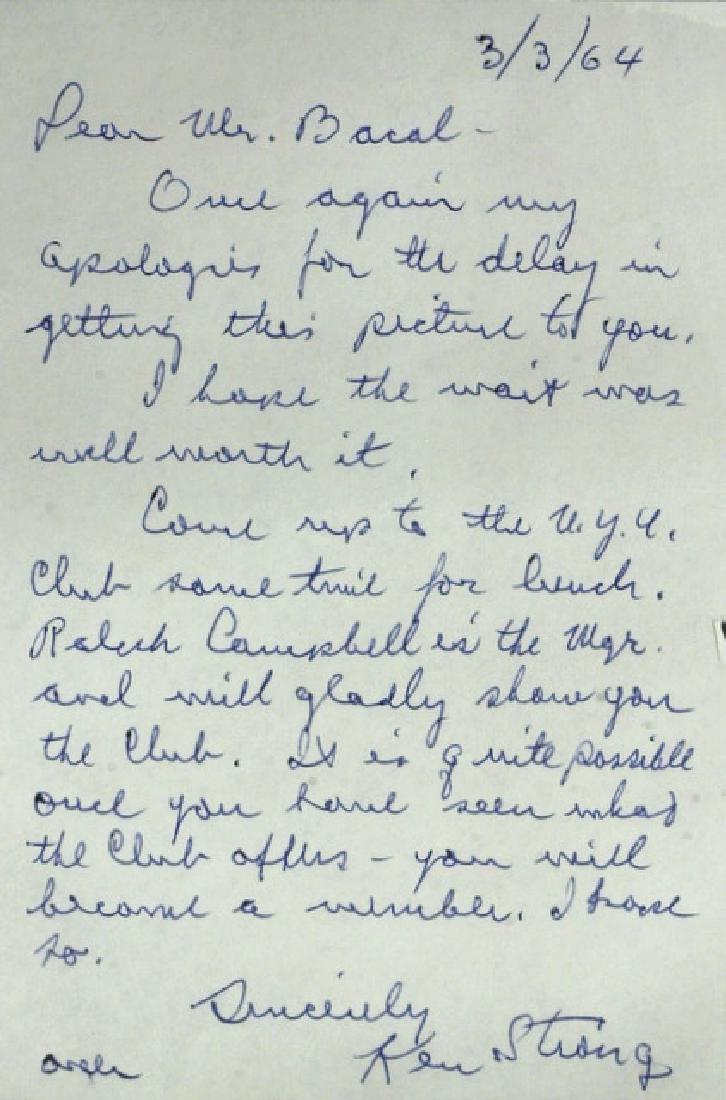 3/3/64
Dear Mr. Bacal -
Once again my
apologies for the delay in
getting this picture to you.
I hope the wait was
well worth it.
Come up to the N.Y.U.
Club some time for lunch.
Ralph Campbell is the Mgr.
and will gladly show you
the Club. It is quite possible
once you have seen what
the Club offers - you will
become a member. I hope
so.
Sincerely
Ken Strong
over